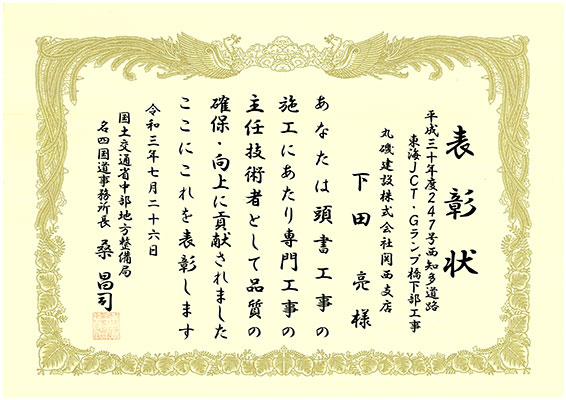 表彰状
平成三十年度247号西知多道路
東海JCT・Gランプ橋下部工事
丸磯建設株式会社関西支店
下田亮様
あなたは頭書工事の
施工にあたり専門工事の
主任技術者として品質の
確保・向上に貢献されました
ここにこれを表彰します
令和三年七月二十六日
国土交通省中部地方整備局
名四国道事務所長 桑昌司